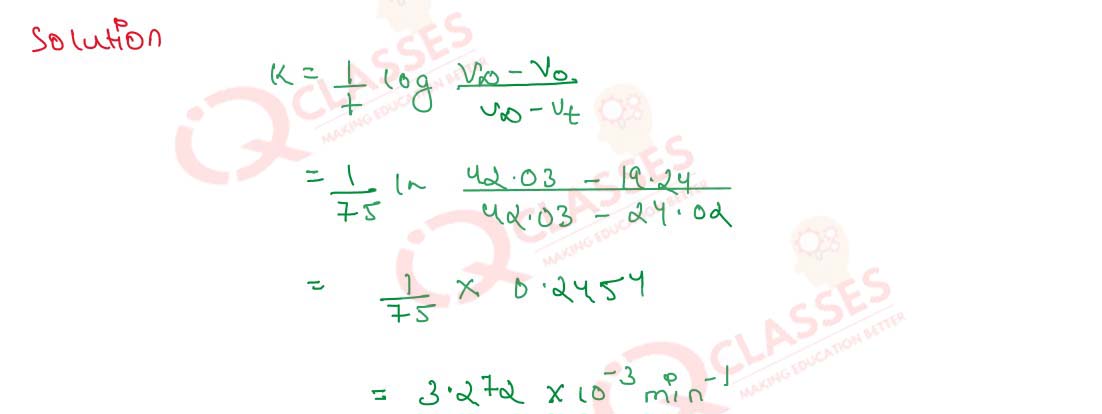 Solution
K = 1/t log V∞ - V₀ / V∞ - Vt
= 1/75 ln 42.03 - 19.24 / 42.03 - 24.02
= 1/75 × 0.2454
= 3.272 × 10⁻³ min⁻¹
CLASSES
MAKING EDUCATION BETTER
CLASSES
MAKING EDUCATION BETTER
CLASSES
MAKING EDUCATION BETTER